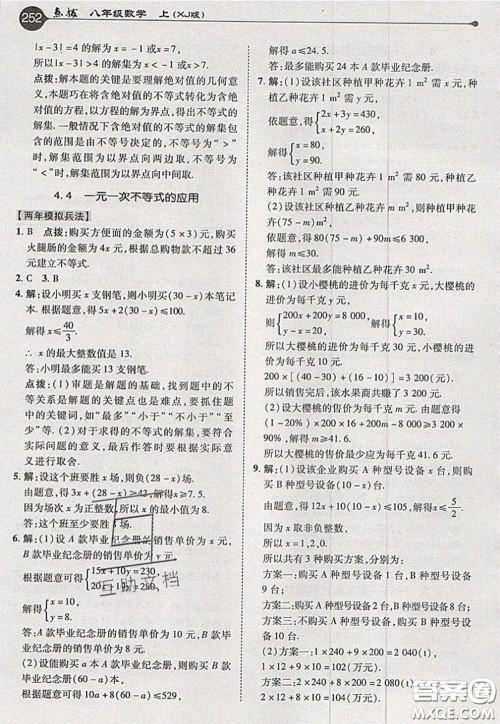 252 点拨 八年级数学 上(XJ版)
|x-3|=4的解为x=-1或x=7,所以
|x-3|>4的解集为x<-1或x>7.
点拨:本题的关键是要理解绝对值的几何意
义,本题巧在将含绝对值的不等式转化为含绝
对值的方程,以方程的解为界点,得出不等式的
解集.一般情况下含绝对值的不等式的解集包
含了范围与界点两部分,不等号为“>”
时,解集范围为以界点向两边取,不等号为
“<”时,解集范围为以界点向中间取.
4.4 一元一次不等式的应用
【两年模拟兵法】
1. B 点拨:购买方便面的金额为(5×3)元,购买
火腿肠的金额为4x元,根据总购物款不超过36
元建立不等式.
2. C 3. B
4. 解:设小明买x支钢笔,则小明买(30-x)本笔记
本.
解得x≤40/3.
∴x的最大整数值是13.
答:小明最多能买13支钢笔.
点拨:(1)审题是解题的基础,找到题中的不
等关系是解题的关键点也是难点,要抓住题
中的关键词,如“最多”“小于”“不小于”“至
少”等.(2)对于求得的不等式的解,要符合
实际问题的意义,最后作答时要根据实际情
况进行取舍.
5. 解:设这个班要胜x场,则负(28-x)场.
由题意得3x+(28-x)≥43,解得x≥7.5.
因为场次x为正整数,所以x的最小值为8.
答:这个班至少要胜8场.
6. 解:(1)设A款毕业纪念册的销售单价为x元,
B款毕业纪念册的销售单价为y元,
根据题意可得{15x+10y=230,
20x+10y=280,
解得{x=10,
y=8.
答:A款毕业纪念册的销售单价为10元,B款
毕业纪念册的销售单价为8元.
(2)设能购买a本A款毕业纪念册,则购买B
款毕业纪念册(60-a)本,
根据题意可得10a+8(60-a)≤529,
解得a≤24.5.
答:最多能够买24本A款毕业纪念册.
7. 解:(1)设该社区种植甲种花卉1 m²需x元,种
植乙种花卉1 m²需y元,
依题意,得{2x+3y=430,
x+2y=260,
解得{x=80,
y=90.
答:该社区种植甲种花卉1 m²需80元,种植
乙种花卉1 m²需90元.
(2)设该社区种植乙种花卉m m²,则种植甲
种花卉(75-m)m²,
依题意,得80(75-m)+90m≤6 300,
解得m≤30.
答:该社区最多能种植乙种花卉30 m².
8. 解:(1)设小樱桃的进价为每千克x元,大樱桃
的进价为每千克y元,
则{200x+200y=8 000,
y-x=20,
解得{x=10,
y=30.
所以大樱桃的进价为每千克30元,小樱桃的
进价为每千克10元.
200×[(40-30)+(16-10)]=3 200(元).
所以销售完后,该水果商共赚了3 200元.
(2)设大樱桃的售价为每千克m元.由题意得
(1-20%)×200×16+200m-8 000≥3 200×
90%,解得m≥41.6.
所以大樱桃的售价最少应为每千克41.6元.
9. 解:(1)设该企业购买A种型号设备x台,则
购买B种型号设备(10-x)台.
由题意得12x+10(10-x)≤105,解得x≤5/2.
因为x取非负整数,
所以x=1,2,0.
所以共有3种购买方案,分别为
方案一:购买A种型号设备1台,B种型号设备
9台;
方案二:购买A种型号设备2台,B种型号设备
8台;
方案三:购买A种型号设备0台,B种型号设备
10台.
(2)方案一:1×240+9×200=2 040(t),
1×12+9×10=102(万元).
方案二:2×240+8×200=2 080(t),
2×12+8×10=104(万元).
互助文档
答案圈
MXQE.COM